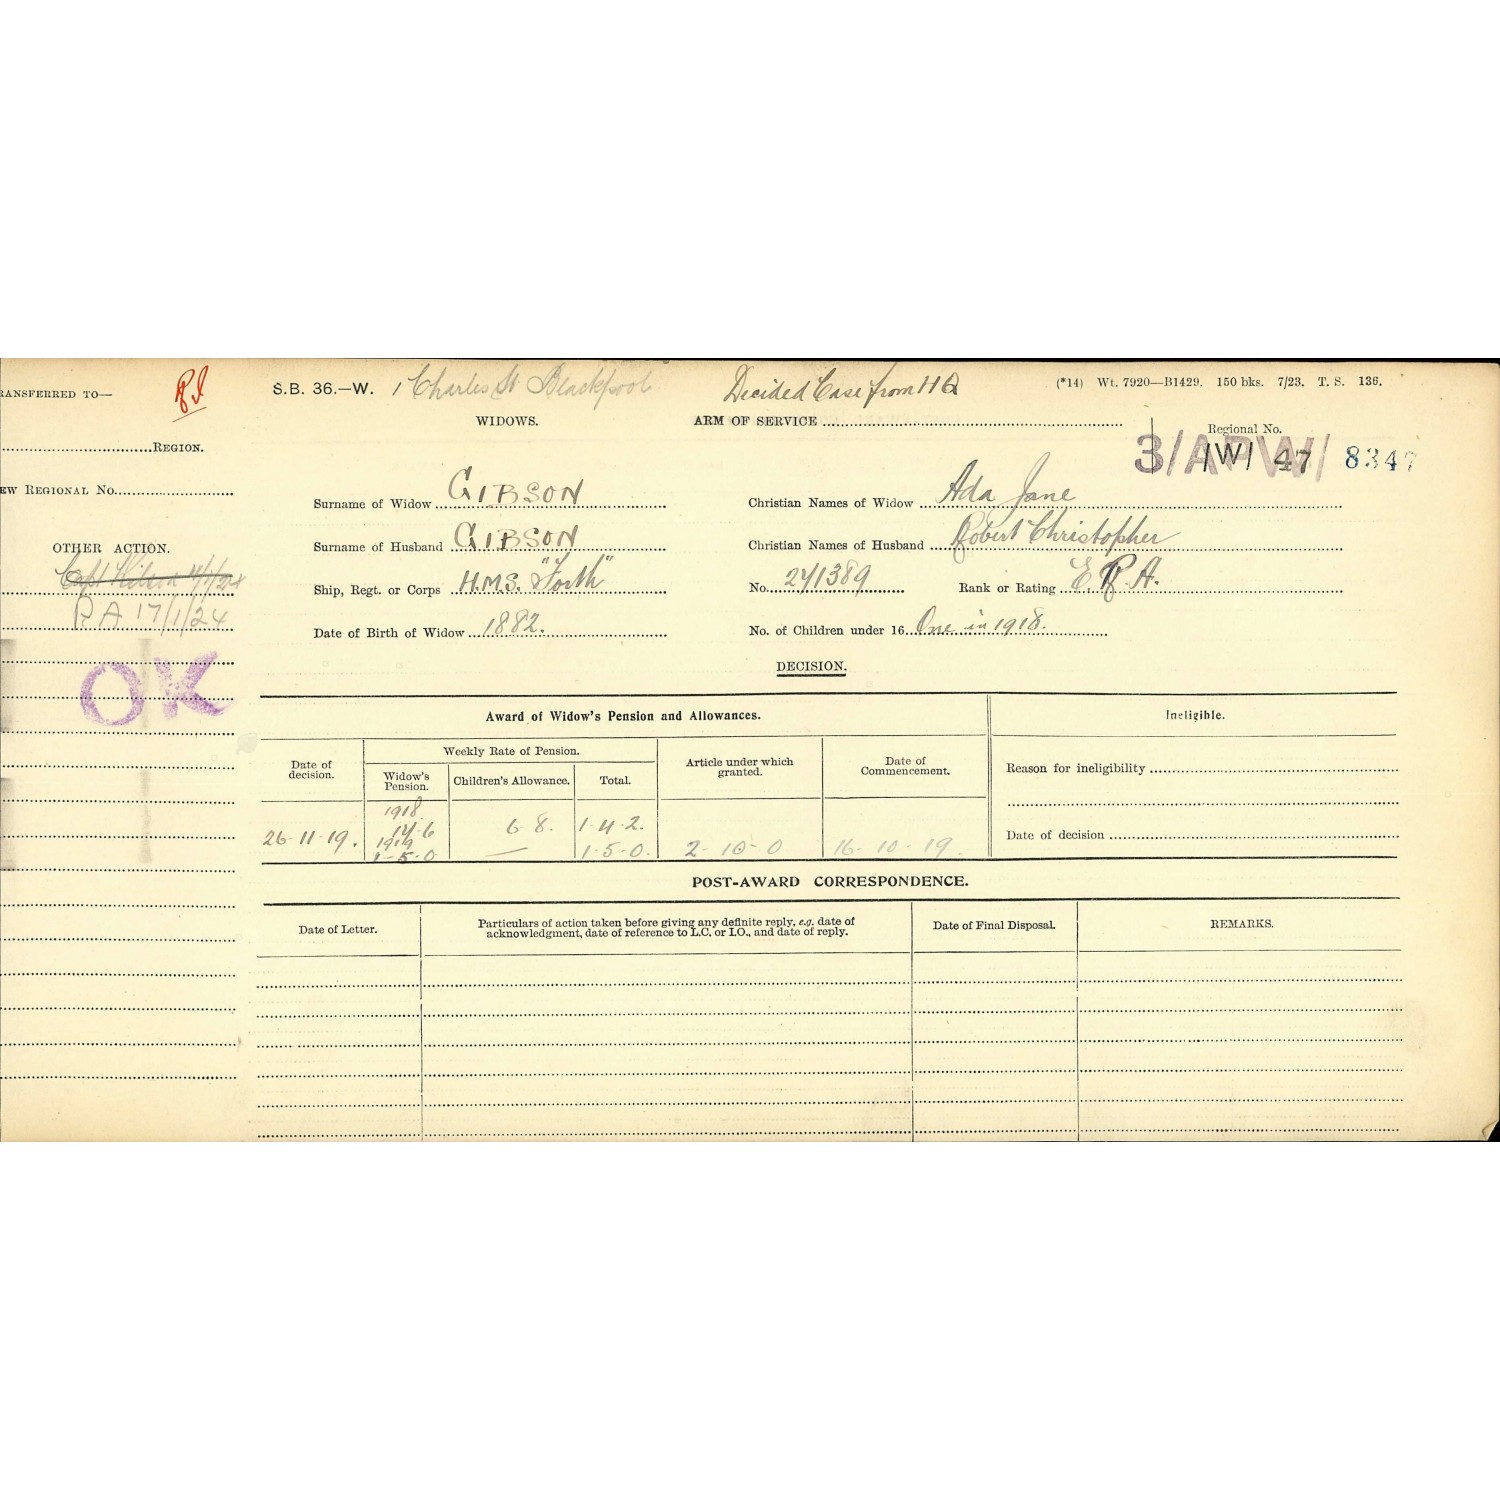 RANSFERRED TO—
REGION.
EW REGIONAL No.
OTHER ACTION.
Capt 11/1/24
RA 17/1/24
OK
S.B. 36.—W. 1 Charles St Blackpool Decided Case from HQ (*14) Wt. 7920—B1429. 150 bks. 7/23. T. S. 136.
WIDOWS. ARM OF SERVICE
Regional No.
3/APW/ 8347
/W/ 47
Surname of Widow GIBSON Christian Names of Widow Ada Jane
Surname of Husband GIBSON Christian Names of Husband Robert Christopher
Ship, Regt. or Corps H.M.S. "Forth" No. 271389 Rank or Rating E.R.A.
Date of Birth of Widow 1882. No. of Children under 16 One in 1918.
DECISION.
Award of Widow's Pension and Allowances. Ineligible.
Date of decision. Weekly Rate of Pension. Article under which granted. Date of Commencement.
Widow's Pension. Children's Allowance. Total.
Reason for ineligibility
1918.
14-6 6-8. 1-4-2.
26-11-19. 1919
1-5-0 — 1-5-0. 2-10-0 16-10-19.
Date of decision
POST-AWARD CORRESPONDENCE.
Date of Letter. Particulars of action taken before giving any definite reply, e.g. date of Date of Final Disposal. REMARKS.
acknowledgment, date of reference to L.C. or I.O., and date of reply.